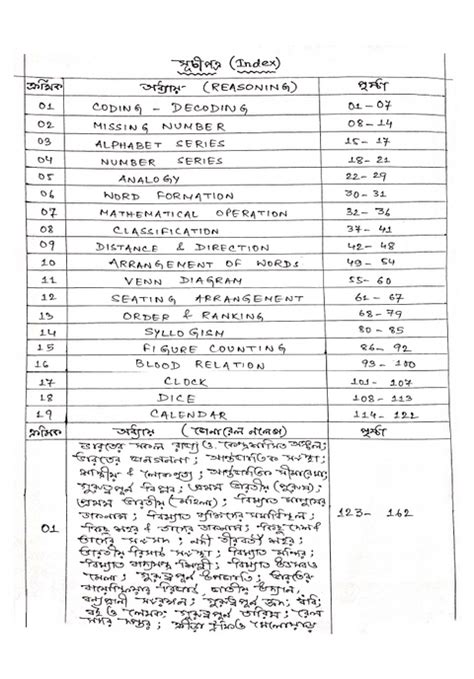 সূচীপত্র (Index)
ক্রমিক অধ্যায় (REASONING) পৃষ্ঠা
01 CODING - DECODING 01 - 07
02 MISSING NUMBER 08 - 14
03 ALPHABET SERIES 15 - 17
04 NUMBER SERIES 18 - 21
05 ANALOGY 22 - 29
06 WORD FORMATION 30 - 31
07 MATHEMATICAL OPERATION 32 - 36
08 CLASSIFICATION 37 - 41
09 DISTANCE & DIRECTION 42 - 48
10 ARRANGEMENT OF WORDS 49 - 54
11 VENN DIAGRAM 55 - 60
12 SEATING ARRANGEMENT 61 - 67
13 ORDER & RANKING 68 - 79
14 SYLLOGISM 80 - 85
15 FIGURE COUNTING 86 - 92
16 BLOOD RELATION 93 - 100
17 CLOCK 101 - 107
18 DICE 108 - 113
19 CALENDAR 114 - 122
ক্রমিক অধ্যায় (জেনারেল নলেজ) পৃষ্ঠা
ভারতের সকল রাজ্য ও কেন্দ্রশাসিত অঞ্চল;
ভারতের জনগণনা; আন্তর্জাতিক সংস্থা;
শাস্ত্রীয় & লোকনৃত্য; আন্তর্জাতিক সীমারেখা;
গুরুত্বপূর্ণ বিপ্লব; প্রথম ভারতীয় (পুরুষ);
প্রথম ভারতীয় (মহিলা); বিখ্যাত মানুষের
ডাকনাম; বিখ্যাত ব্যক্তিদের সমাধিস্থল;
কিছু শহর & তাদের ডাকনাম; কিছু দেশ &
01 তাদের সংসদ; নদী তীরবর্তী শহর; 123 - 162
ভারতীয় রিসার্চ সংস্থা; বিখ্যাত মন্দির;
বিখ্যাত বাদ্যযন্ত্র শিল্পী; বিখ্যাত উৎসব ও
মেলা; গুরুত্বপূর্ণ উপজাতি; ভারতের
রিজার্ভ, জাতীয় উদ্যান,
বন্যপ্রাণী সংরক্ষণ; গুরুত্বপূর্ণ
বই ও লেখক; গুরুত্বপূর্ণ তারিখ; রেল
সদর দপ্তর; ক্রীড়া ট্রফি ও খেলোয়াড়